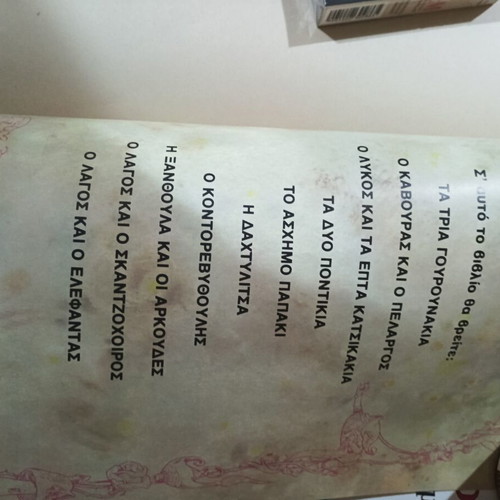 Σ' αυτό το βιβλίο θα βρείτε:
ΤΑ ΤΡΙΑ ΓΟΥΡΟΥΝΑΚΙΑ
Ο ΚΑΒΟΥΡΑΣ ΚΑΙ Ο ΠΕΛΑΡΓΟΣ
Ο ΛΥΚΟΣ ΚΑΙ ΤΑ ΕΠΤΑ ΚΑΤΣΙΚΑΚΙΑ
ΤΑ ΔΥΟ ΠΟΝΤΙΚΙΑ
ΤΟ ΑΣΧΗΜΟ ΠΑΠΑΚΙ
Η ΔΑΧΤΥΛΙΤΣΑ
Ο ΚΟΝΤΟΡΕΒΥΘΟΥΛΗΣ
Η ΞΑΝΘΟΥΛΑ ΚΑΙ ΟΙ ΑΡΚΟΥΔΕΣ
Ο ΛΑΓΟΣ ΚΑΙ Ο ΣΚΑΝΤΖΟΧΟΙΡΟΣ
Ο ΛΑΓΟΣ ΚΑΙ Ο ΕΛΕΦΑΝΤΑΣ